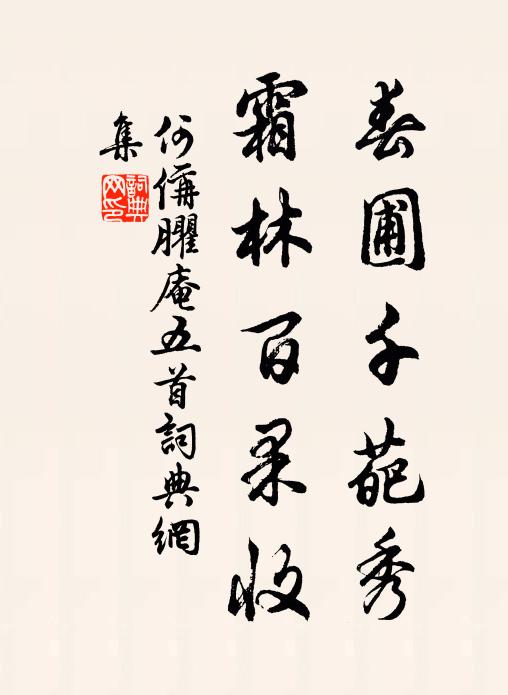 春圃千葩秀
霜林百果收
何偁臞庵五首詞典網
集
詞典網印